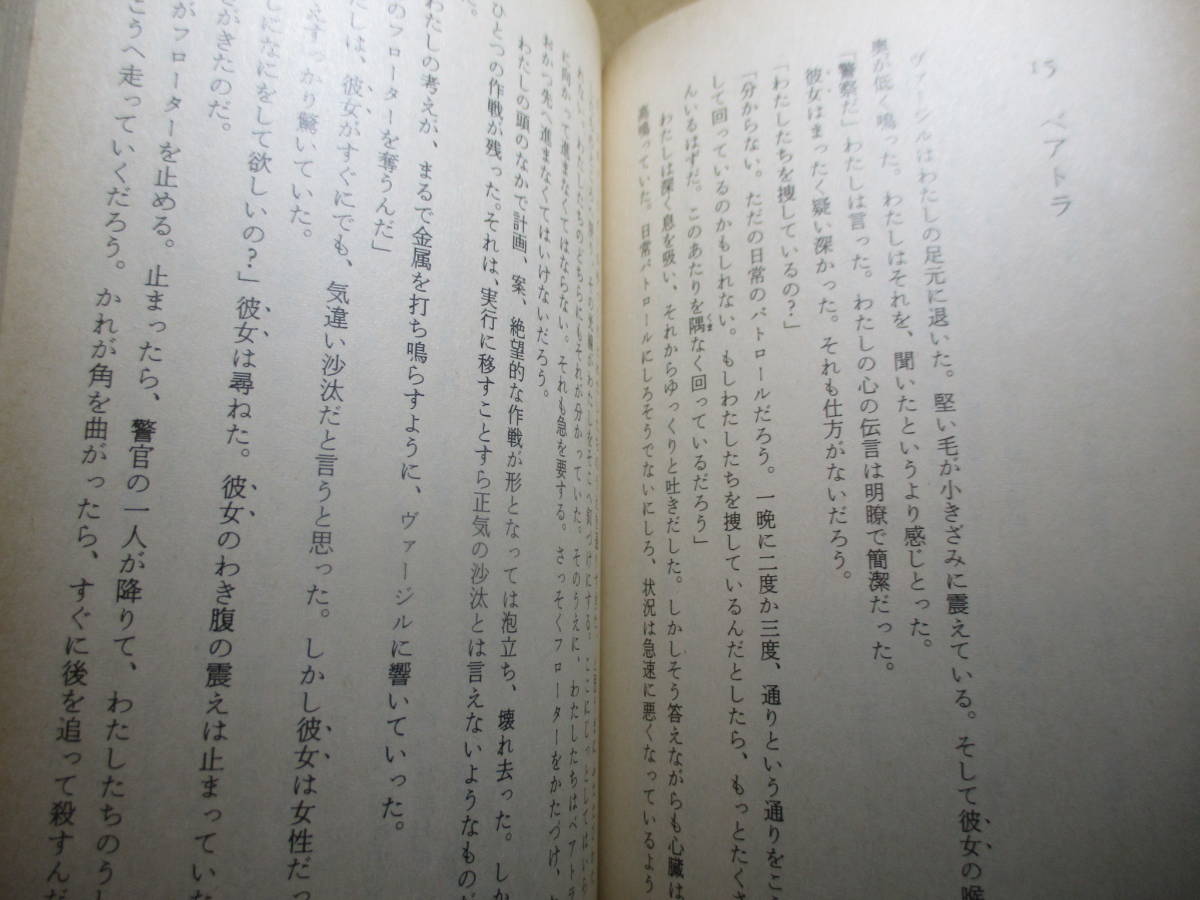 15 ベアトラ
ヴァージルはわたしの足元に退いた。堅い毛が小きざみに震えている。そして彼女の喉
奥が低く鳴った。わたしはそれを、聞いたというより感じとった。
「警察だ」わたしは言った。わたしの心の伝言は明瞭で簡潔だった。
彼女はまったく疑い深かった。それも仕方がないだろう。
「わたしたちを捜しているの?」
「分からない。ただの日常のパトロールだろう。一晩に二度か三度、通りという通りをこ
して回っているのかもしれない。もしわたしたちを捜しているんだとしたら、もっとたくさ
んいるはずだ。このあたりを隅なく回っているだろう」
くま
わたしは深く息を吸い、それからゆっくりと吐きだした。しかしそう答えながらも心臓は
高鳴っていた。日常パトロールにしろそうでないにしろ、状況は急速に悪くなっているよう
れない。わたしたちのどちらにもそれが分かっていた。そのうえに、わたしたちはベアトラ
に向かって進まなくてはならない。それも急を要する。さっそくフローターをかたづけ、
おかつ先へ進まなくてはいけないだろう。
わたしの頭のなかで計画、案、絶望的な作戦が形となっては泡立ち、壊れ去った。しか
ひとつの作戦が残った。それは、実行に移すことすら正気の沙汰とは言えないようなものだ
た。
わたしの考えが、まるで金属を打ち鳴らすように、ヴァージルに響いていった。
のフローターを奪うんだ」
たしは、彼女がすぐにでも、気違い沙汰だと言うと思った。しかし彼女は女性だっ
えすっかり驚いていた。
しになにをして欲しいの?」彼女は尋ねた。彼女のわき腹の震えは止まっていた
きがきたのだ。
がフローターを止める。止まったら、警官の一人が降りて、わたしたちのうし
こうへ走っていくだろう。かれが角を曲がったら、すぐに後を追って殺すんだ